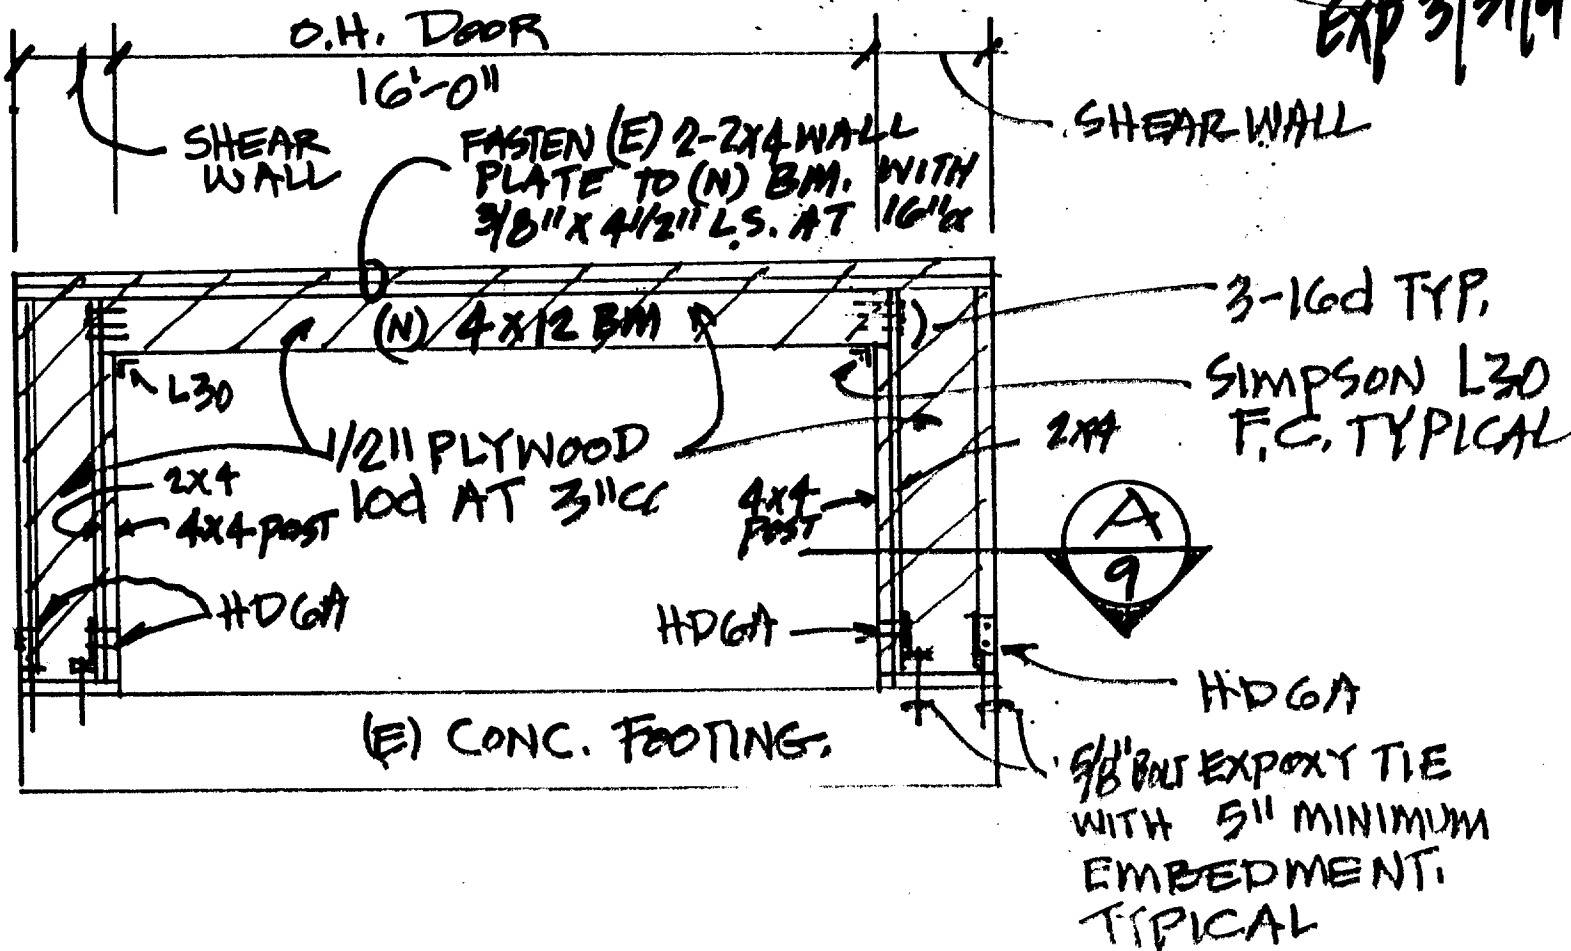 O.H. DOOR
16'-0"
EXP 3/31/9
SHEAR
WALL
FASTEN (E) 2-2x4 WALL
PLATE TO (N) BM. WITH
3/8" x 4 1/2" L.S. AT 16"
SHEAR WALL
(N) 4x12 BM
3-16d TYP.
L30
SIMPSON L30
F.C. TYPICAL
1/2" PLYWOOD
10d AT 3"
2x4
4x4 POST
4x4
POST
2x4
A
9
HD6A
HD6A
HD6A
(E) CONC. FOOTING.
5/8" BOLT EXPOXY TIE
WITH 5" MINIMUM
EMBEDMENT.
TYPICAL